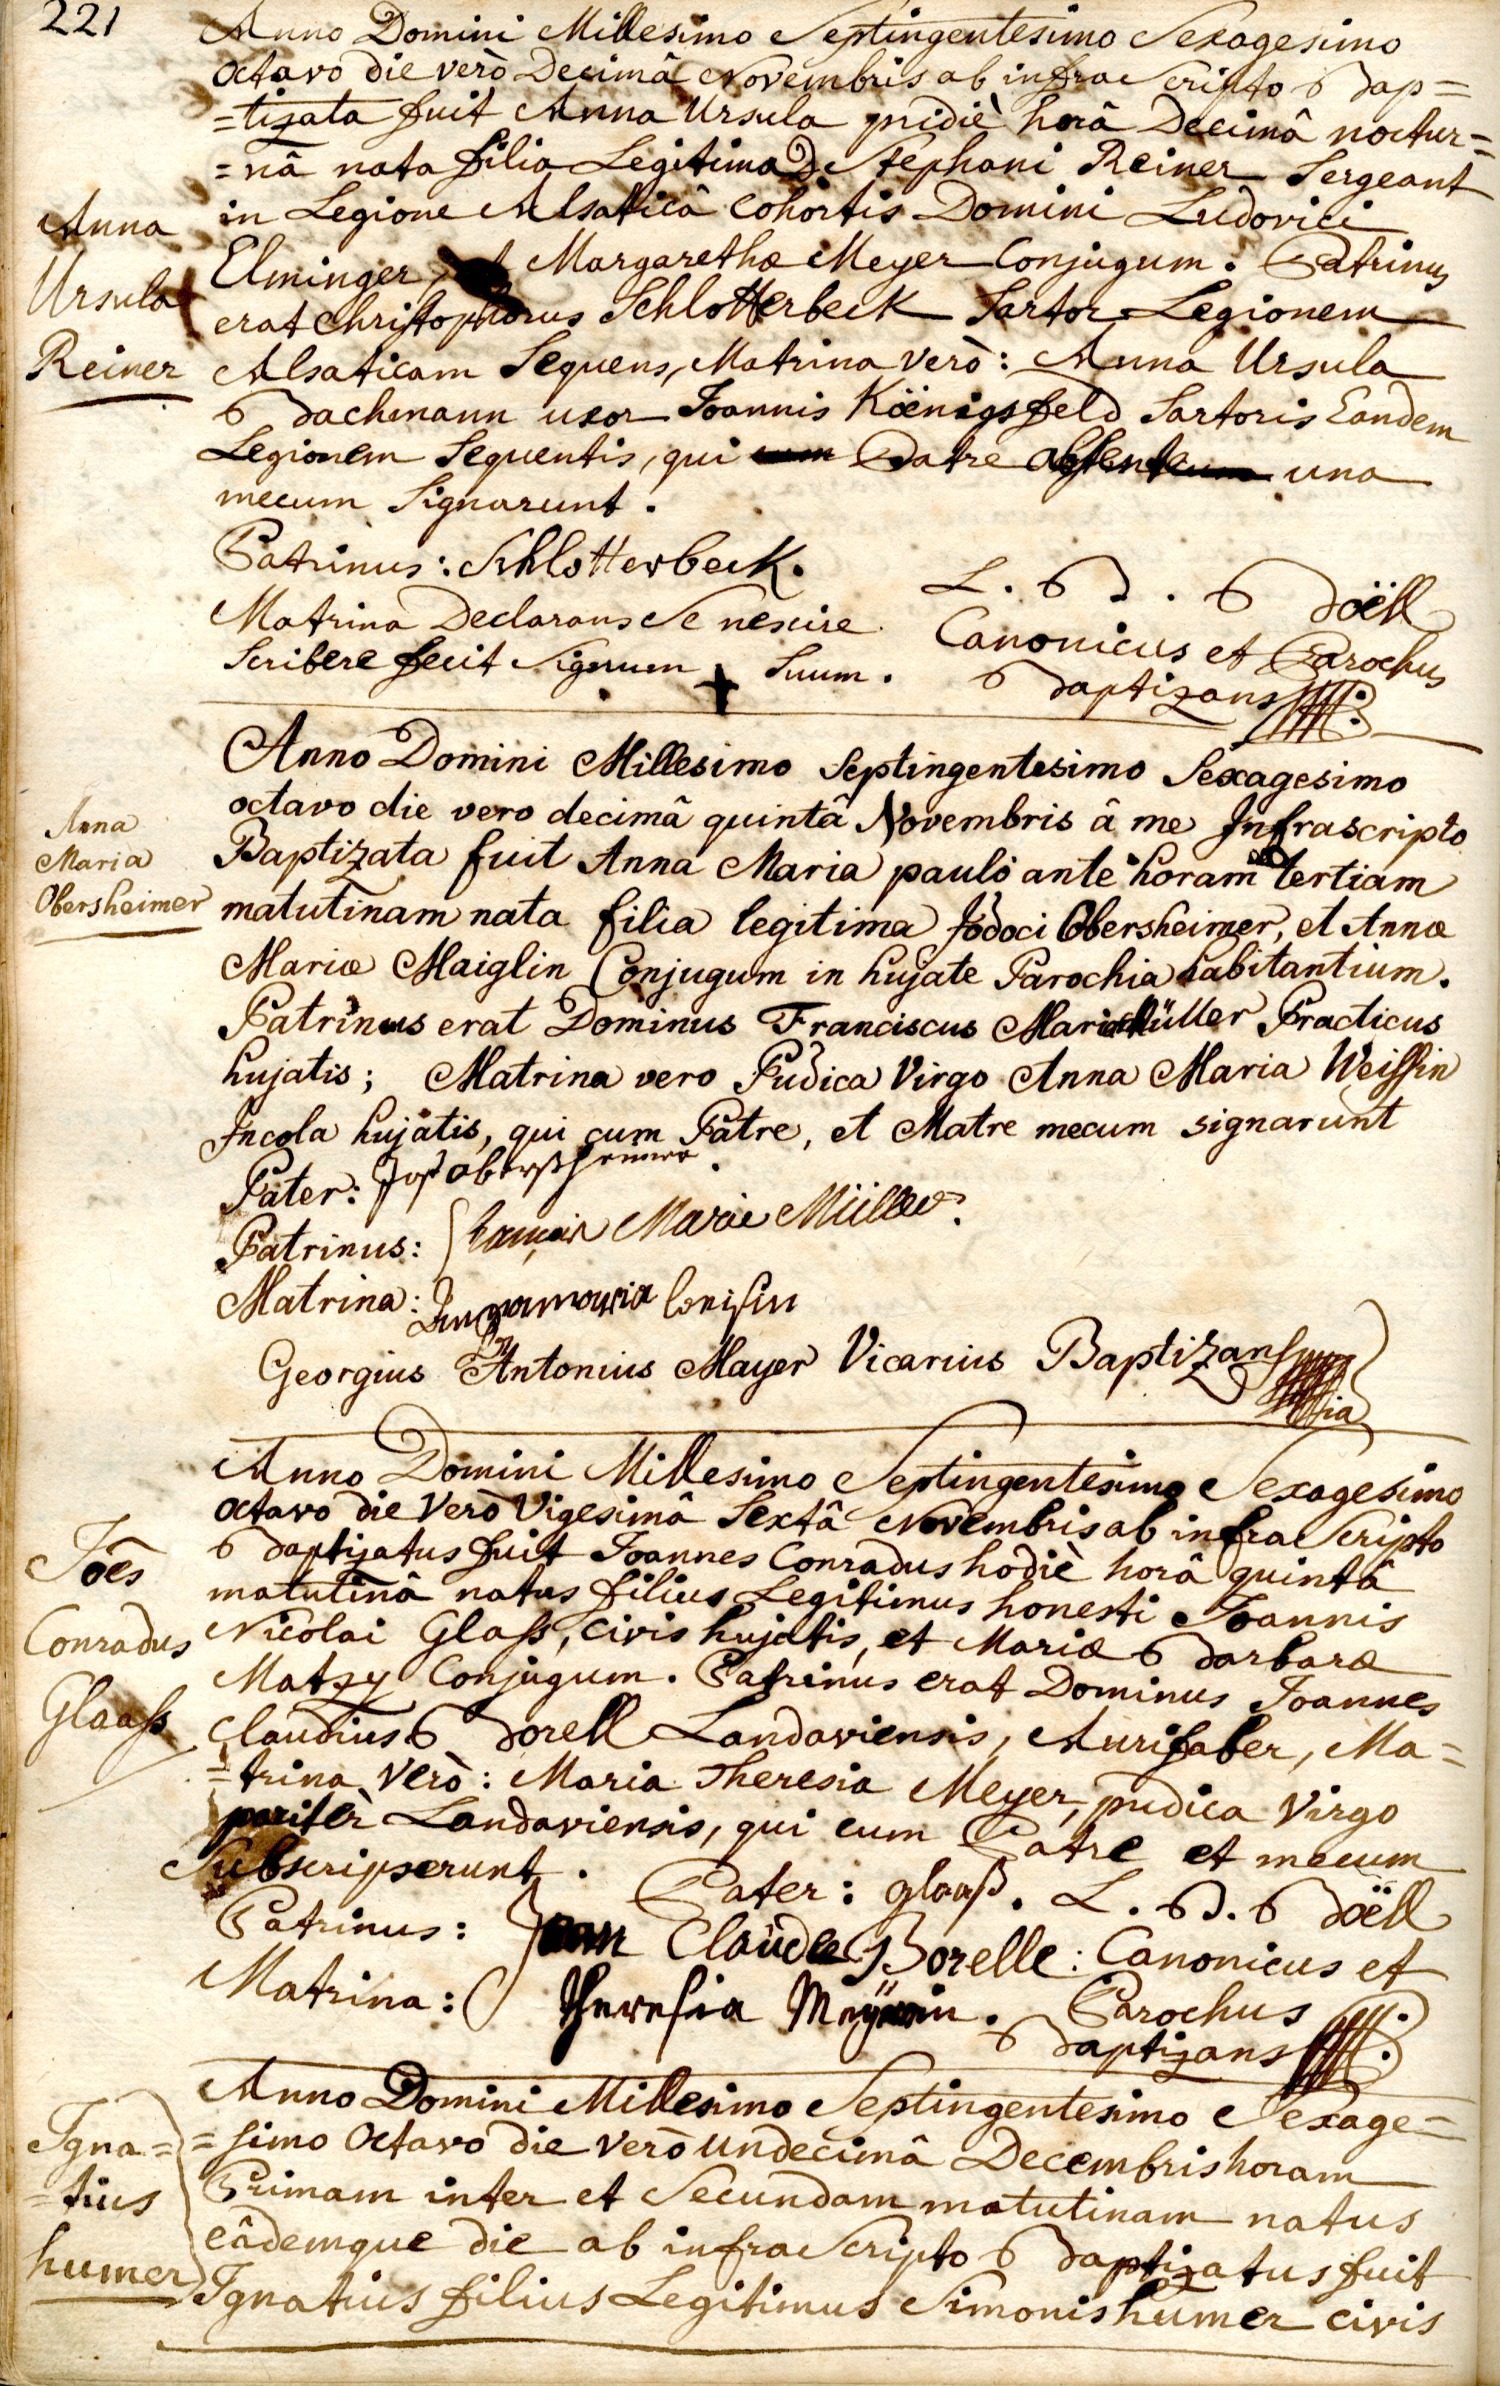 221
Anno Domini Millesimo Septingentesimo Sexagesimo
octavo die verò Decimâ Novembris ab infra Scripto Bap=
=tizata fuit Anna Ursula pridiè horâ Decimâ noctur=
=nâ nata filia Legitima D. Stephani Reiner Sergeant
in Legione Alsaticâ Cohortis Domini Ludovici
Elminger, et Margarethæ Meyer Conjugum. Patrinus
erat Christophorus Schlotterbeck Sartor Legionem
Alsaticam Sequens, Matrina verò: Anna Ursula
Bachmann uxor Joannis Köenigsfeld Sartoris Eandem
Legionem Sequentis, qui cum Patre absente una
mecum Signarunt.
Anna
Ursula
Reiner
Patrinus: Schlotterbeck.
Matrina Declarans Se nescire
Scribere fecit Signum + Suum.
L. B. Boëll
Canonicus et Parochus
Baptizans
Anno Domini Millesimo Septingentesimo Sexagesimo
octavo die vero decimâ quintâ Novembris â me Infrascripto
Baptizata fuit Anna Maria paulo ante horam tertiam
matutinam nata filia legitima Jodoci Obersheimer, et Annæ
Mariæ Maiglin Conjugum in hujate Parochia habitantium.
Patrinus erat Dominus Franciscus Maria Müller Practicus
hujatis; Matrina vero Pudica Virgo Anna Maria Weissin
Incola hujatis, qui cum Patre, et Matre mecum signarunt
Anna
Maria
Obersheimer
Pater: Jost obersheimer
Patrinus: françois Marie Müller
Matrina: Annamaria
Georgius Antonius Mayer Vicarius Baptizans
Anno Domini Millesimo Septingentesimo Sexagesimo
octavo die Verò Vigesimâ Sextâ Novembris ab infra Scripto
Baptizatus fuit Joannes Conradus hodiè horâ quintâ
matutinâ natus filius Legitimus honesti Joannis
Nicolai Glass, civis hujatis, et Mariæ Barbaræ
Matzy Conjugum. Patrinus erat Dominus Joannes
Claudius Borell Landaviensis, Aurifaber, Ma=
=trina Verò: Maria Theresia Meyer, pudica Virgo
pariter Landaviensis, qui cum Patre et mecum
Subscripserunt.
Jöes
Conradus
Glaass
Pater: glaass. L. B. Boëll
Patrinus: Jean Claude Borelle: Canonicus et
Matrina: Theresia Meÿerin. Parochus
Baptizans
Anno Domini Millesimo Septingentesimo Sexage=
=simo Octavo die verò Undecimâ Decembris horam
Primam inter et Secundam matutinam natus
eâdemque die ab infra Scripto Baptizatus fuit
Ignatius filius Legitimus Simonis humer civis
Igna=
=tius
humer